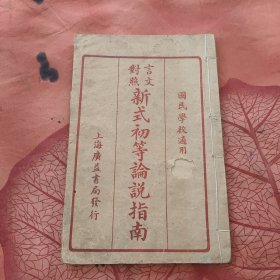 國民學校適用
言文
對照
新式初等論說指南
上海廣益書局發行